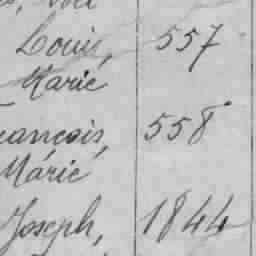 Louis, 557
Marie
ançois, 558
Marie
Joseph, 1844